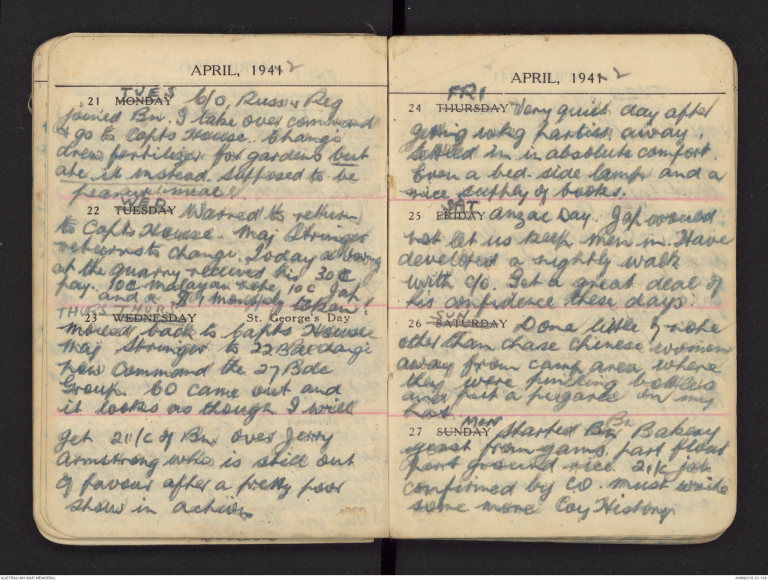 APRIL, 1941 2
TUES
21 MONDAY C/O, Russ & Reg
joined Bn. I take over command
& go to Capts House. Changi
drew fertilizer for gardens but
ate it instead supposed to be
peanut meal!
WED
22 TUESDAY Warned to return
to Capts House. Maj Stringer
returns to Changi. Today a
at the quarry received his 30 c
pay. 10c malayan note, 10c Jap
and a
THURS THURS
23 WEDNESDAY St. George's Day
Moved back to Capts House
Maj Stringer to 22 Bde Changi
now Command the 27 Bde
Group. CO came out and
it looks as though I will
get 2i/c of Bn over Jerry
Armstrong who is still out
of favour after a pretty poor
show in action
APRIL, 1941 2
FRI
24 THURSDAY Very quiet day after
getting wkg parties away.
Settled in in absolute comfort.
Even a bed-side lamp and a
nice supply of books.
SAT
25 FRIDAY Anzac Day. Jap would
not let us keep men in. Have
developed a nightly walk
with c/o. Get a great deal of
his confidence these days.
SUN
26 SATURDAY Done little of note
other than chase Chinese women
away from camp area where
they were pinching bottles
and put a pugaree on my
hat.
MON
27 SUNDAY Started Bn Bakery
yeast from yams, part flour
part ground rice. 2i/c job
confirmed by CO. must write
some more Coy History
AUSTRALIAN WAR MEMORIAL